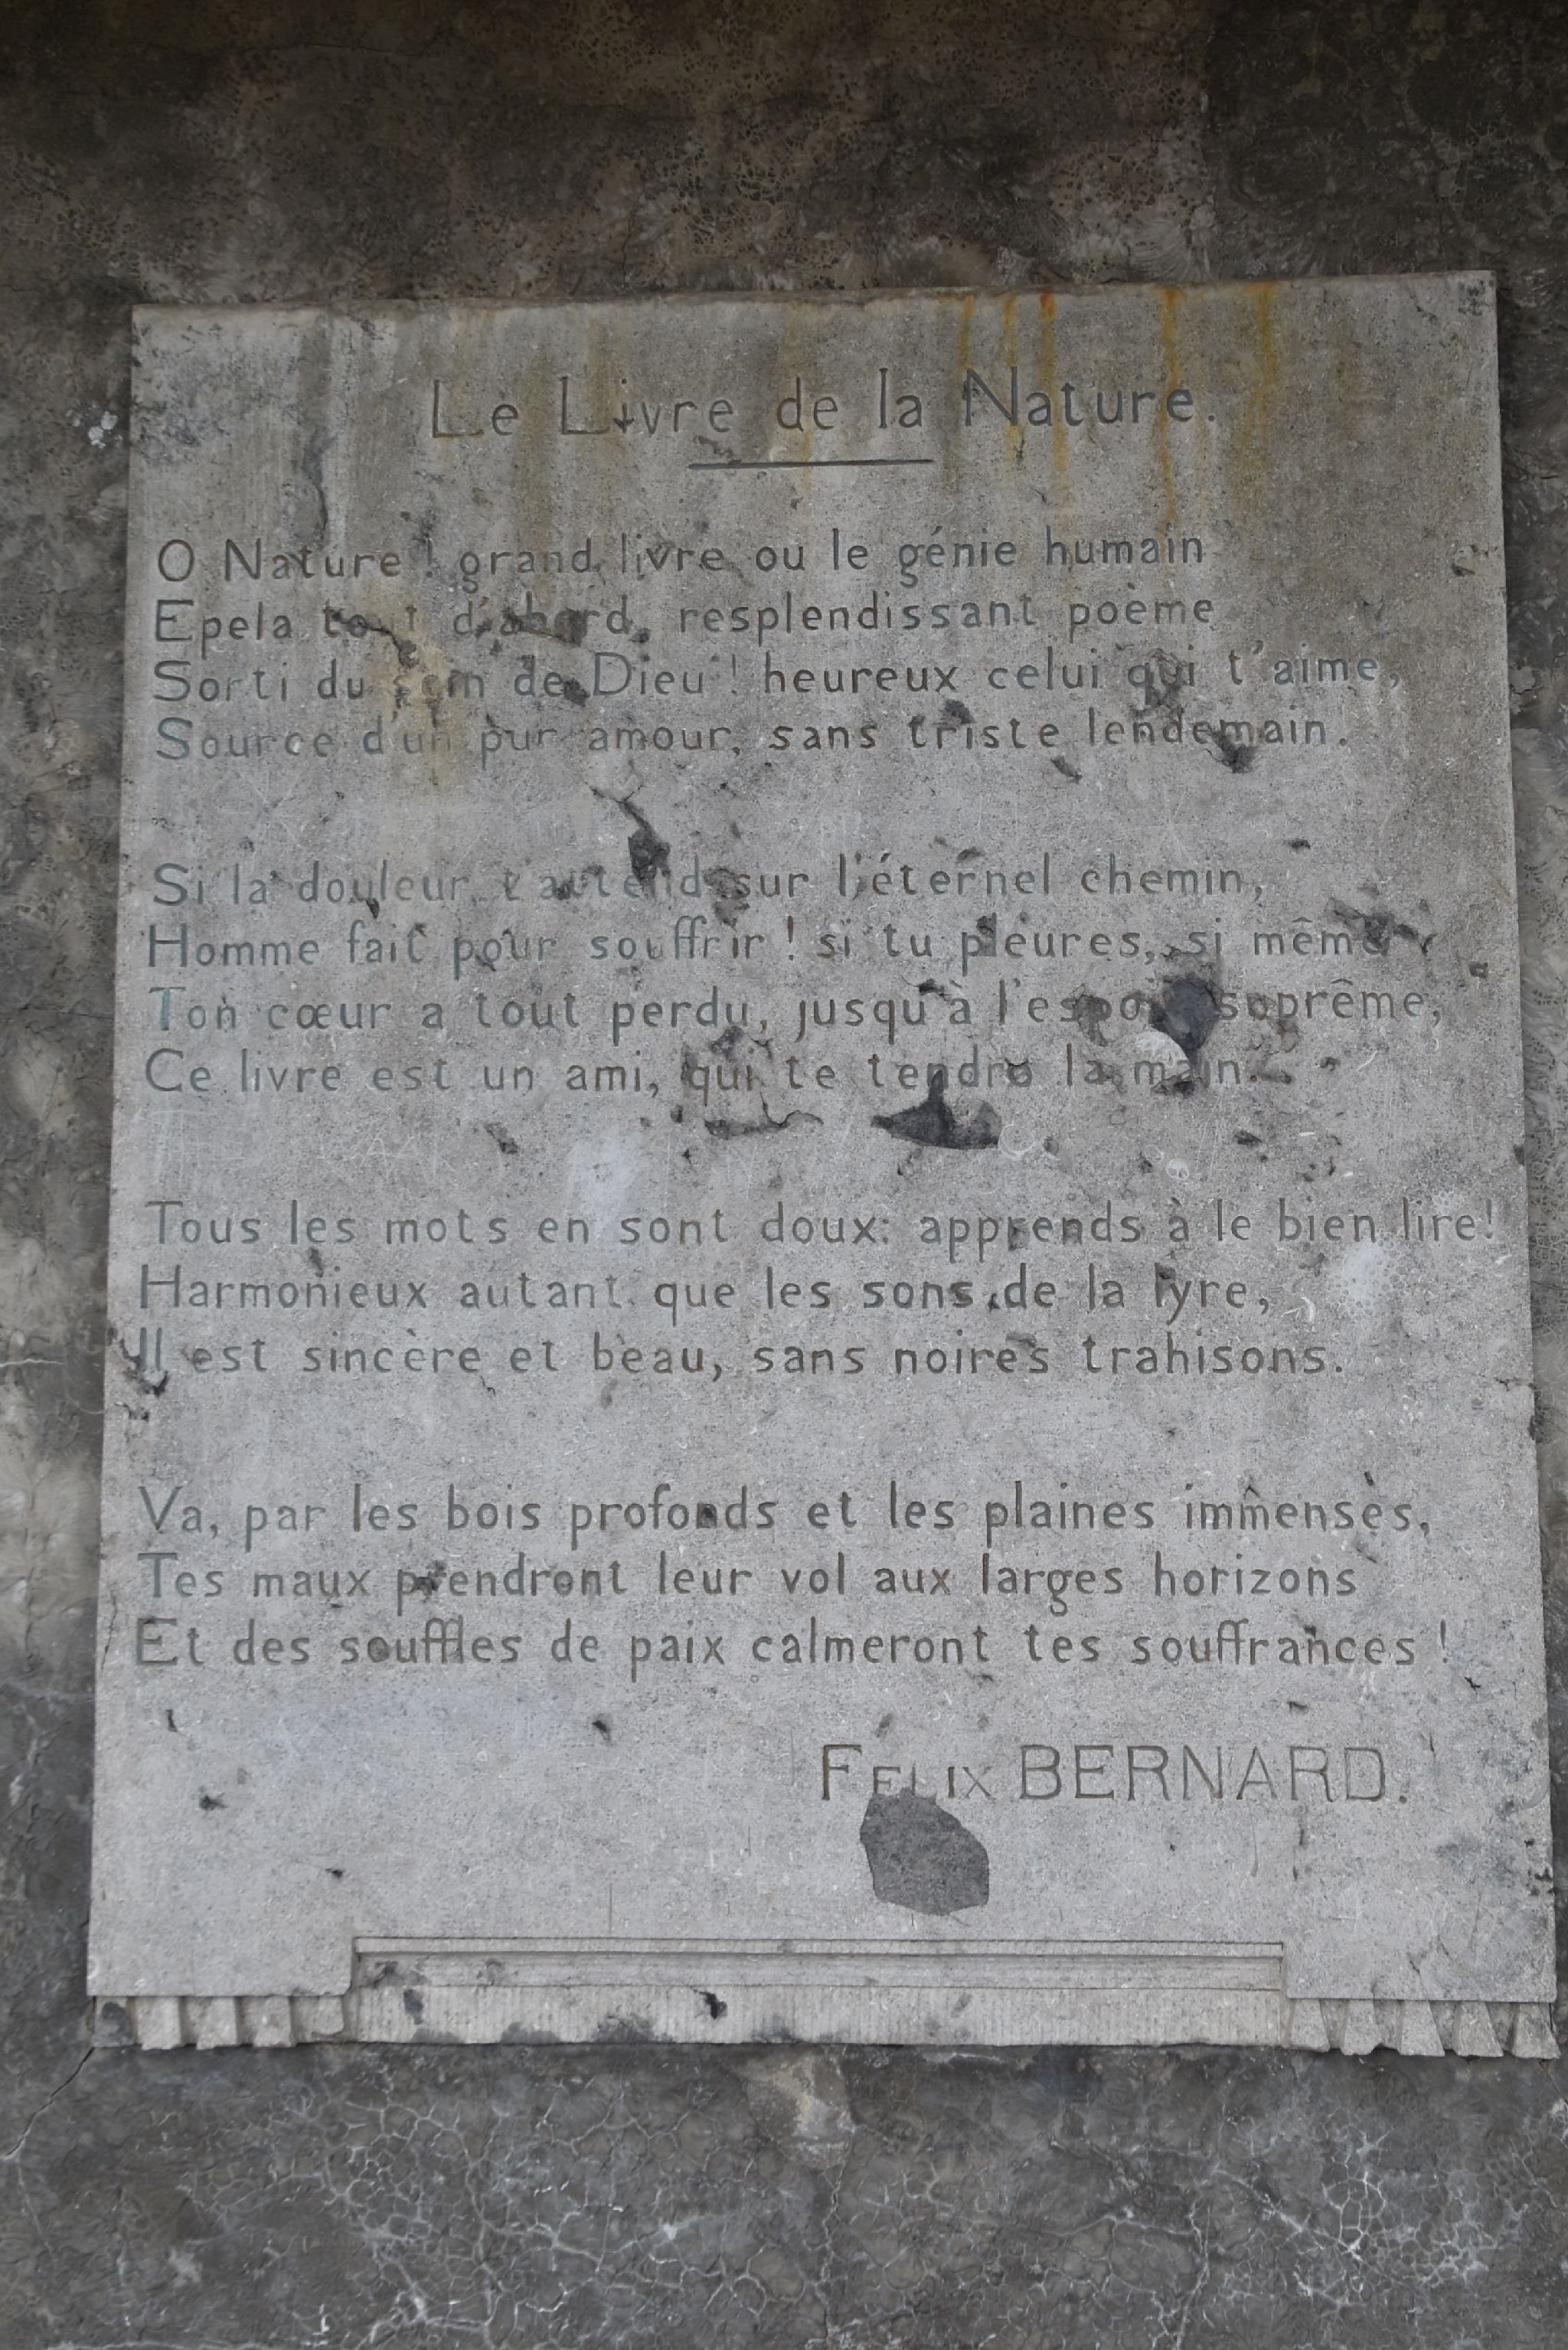 Le Livre de la Nature.
O Nature ! grand livre ou le génie humain
Epela tout d'abord, resplendissant poème
Sorti du sein de Dieu ! heureux celui qui t'aime,
Source d'un pur amour, sans triste lendemain.
Si la douleur t'attend sur l'éternel chemin,
Homme fait pour souffrir ! si tu pleures, si même
Ton cœur a tout perdu, jusqu'à l'espoir suprême,
Ce livre est un ami, qui te tendra la main.
Tous les mots en sont doux: apprends à le bien lire!
Harmonieux autant que les sons de la lyre,
Il est sincère et beau, sans noires trahisons.
Va, par les bois profonds et les plaines immenses,
Tes maux prendront leur vol aux larges horizons
Et des souffles de paix calmeront tes souffrances !
FELIX BERNARD.